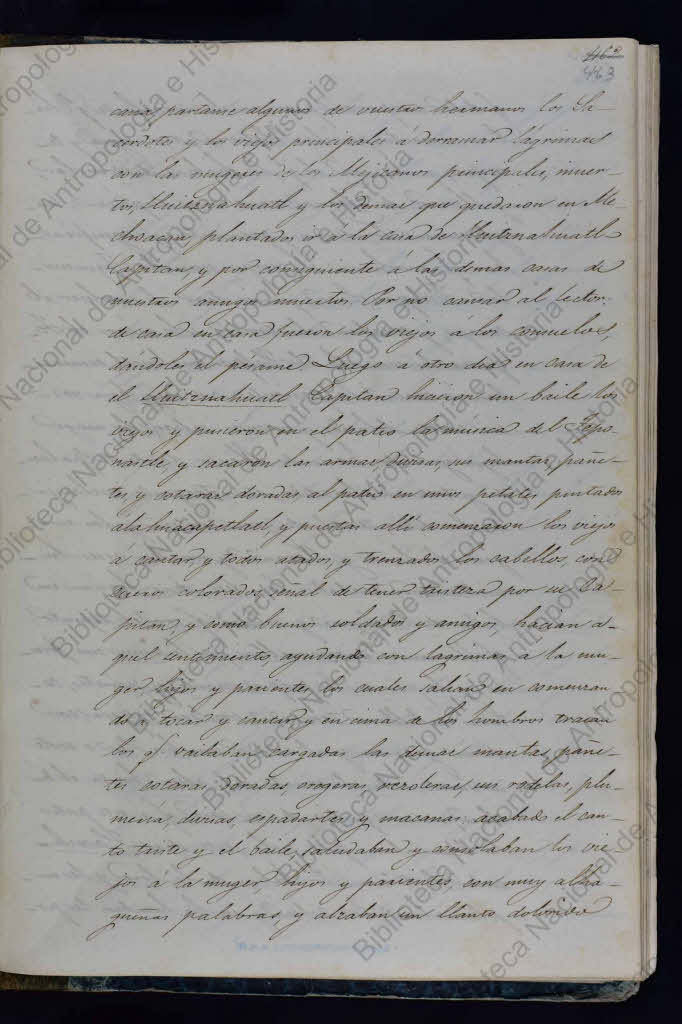 463
443
cana, partanse algunos de vuestros hermanos los Sa-
cerdotes y los viejos principales á derramar lágrimas
con las mugeres de los Mejicanos principales, muer-
tos, Huitznahuatl y los demas que quedaron en Me-
choacan, plantados ir á la casa de Huitznahuatl
Capitan, y por consiguiente á las demas casas de
nuestros amigos muertos. Por no cansar al Lector,
de casa en casa fueron los viejos a los consuelos,
dándoles el pésame. Luego á otro dia en casa de
el Huitznahuatl Capitan hicieron un baile los
viejos y pusieron en el patio la música del Tepo-
nastle, y sacaron las armas, divisas, sus mantas, pañe-
tes, y cotaras doradas al patio en unos petates pintados
alahuacapetlatl, y puestas allí comenzaron los viejos
a cantar, y todos atados, y trenzados los cabellos, con
cueros colorados, señal de tener tristeza por su Ca-
pitan, y como buenos soldados y amigos, hacian a-
quel sentimiento, ayudando con lágrimas a la mu-
ger, hijos y parientes, los cuales salian en comenzan
do a tocar y cantar, y en cima de los hombros traian
los q.e vailaban cargadas las demas mantas, pañe-
tes cotaras, doradas, orogeras, vezoleras, sus rodelas, plu-
meria, divisas, espadartes, y macanas: acabado el can-
to triste y el baile, saludaban y consolaban los vie-
jos á la muger, hijos y parientes, con muy alha-
gueñas palabras, y alzaban un llanto dolorido
Biblioteca Nacional de Antropología e Historia